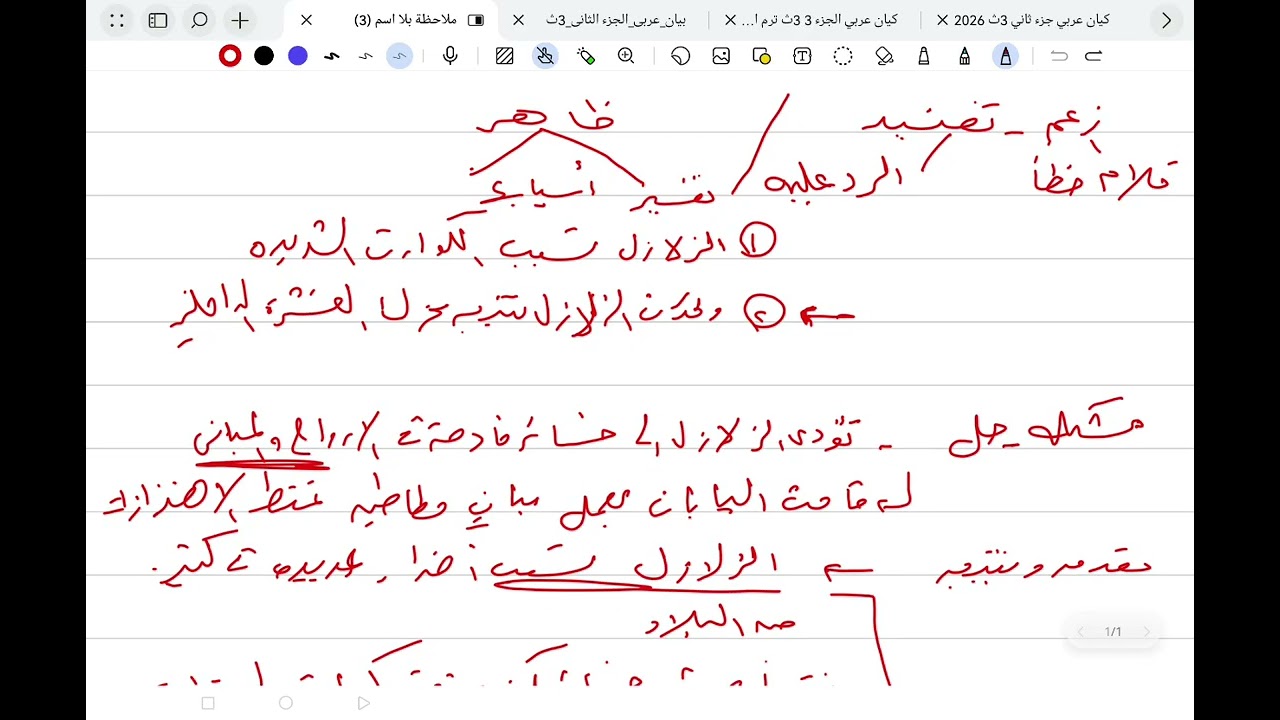 كيان عربي جزء ثاني 3ث 2026
كيان عربي الجزء 3 3ث ترم ا...
بيان_عربي_الجزء الثاني_3ث
ملاحظة بلا اسم (3)
زعم - تفنيد / ظاهر
كلام خطأ الرد عليه تفسير أسبابه
① الزلازل تسبب الكوارث الشديدة
② وتحدث الزلازل نتيجة تحرك القشرة الداخلية
مشكلة - حل - تؤدي الزلازل إلى خسائر فادحة في الأرواح والمباني
قامت اليابان بعمل مباني مطاطية تمتص الاهتزازات
مقدمة ونتيجة الزلازل تسبب أضرار عديدة في كثير
من البلاد
1/1